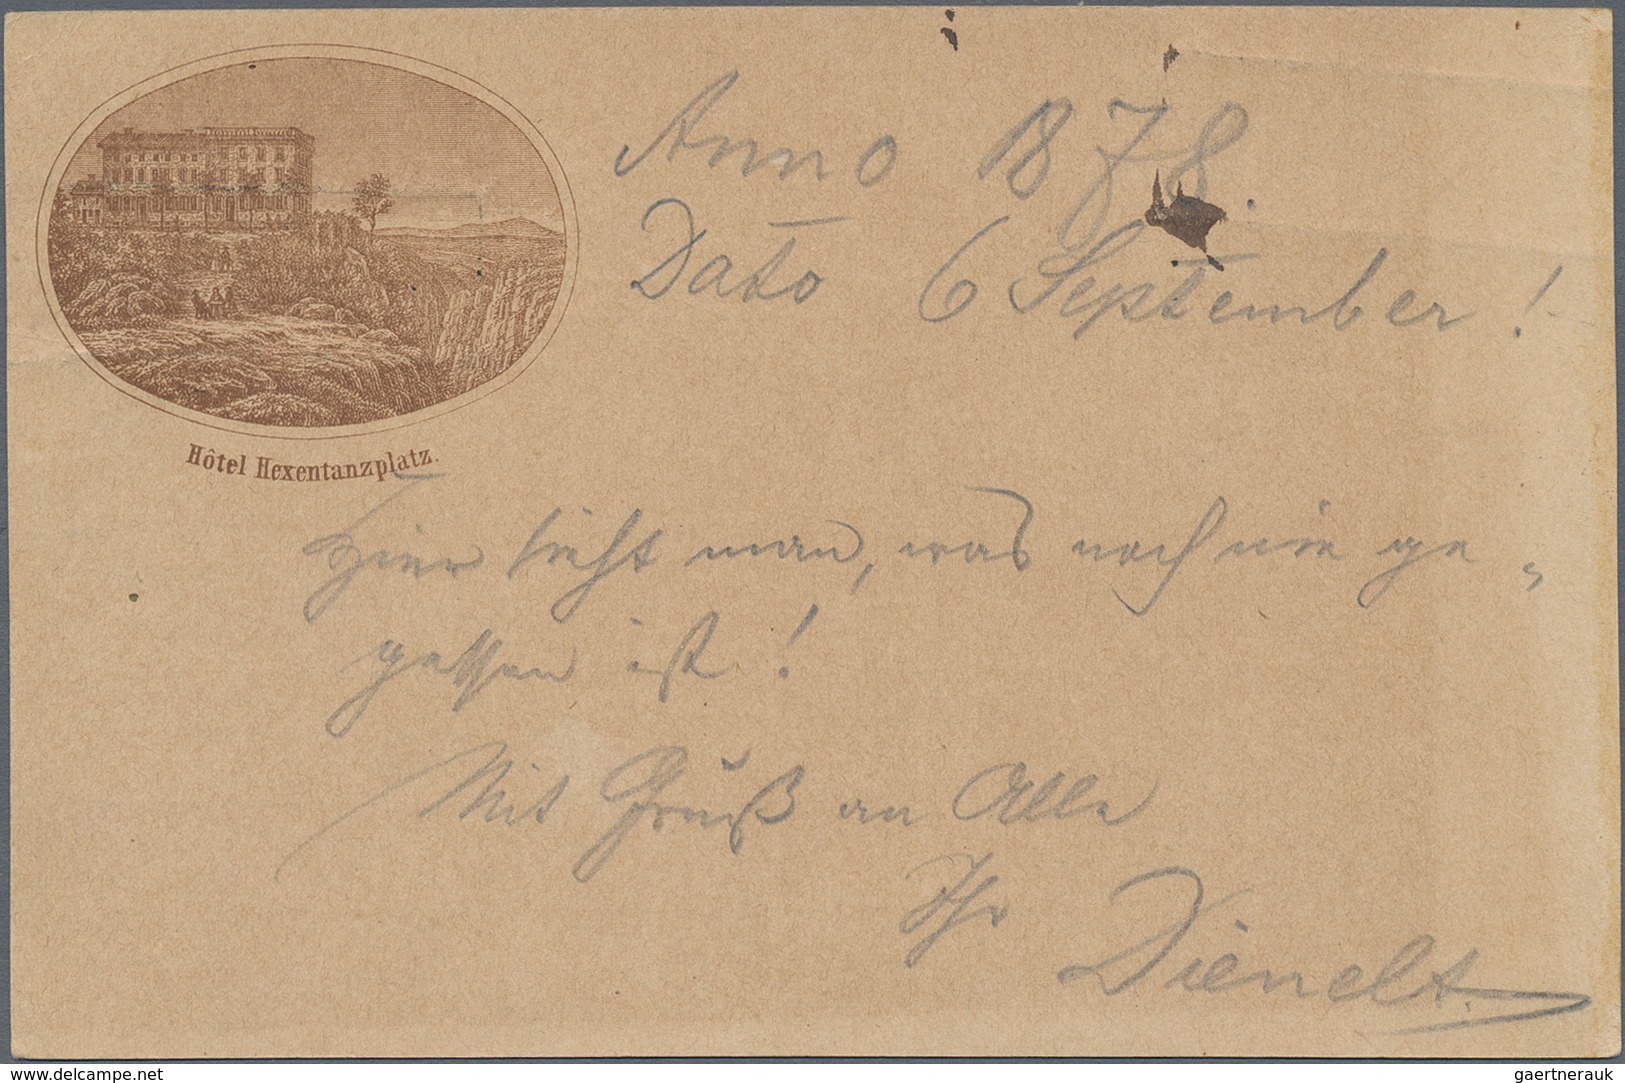 Anno 1878.
Dato 6 September!
Hôtel Hexentanzplatz.
Hier sieht man, was noch nie ge-
gessen ist!
Mit Gruß an Alle
Ihr
Dienelt.
www.delcampe.net
gaertnerauk